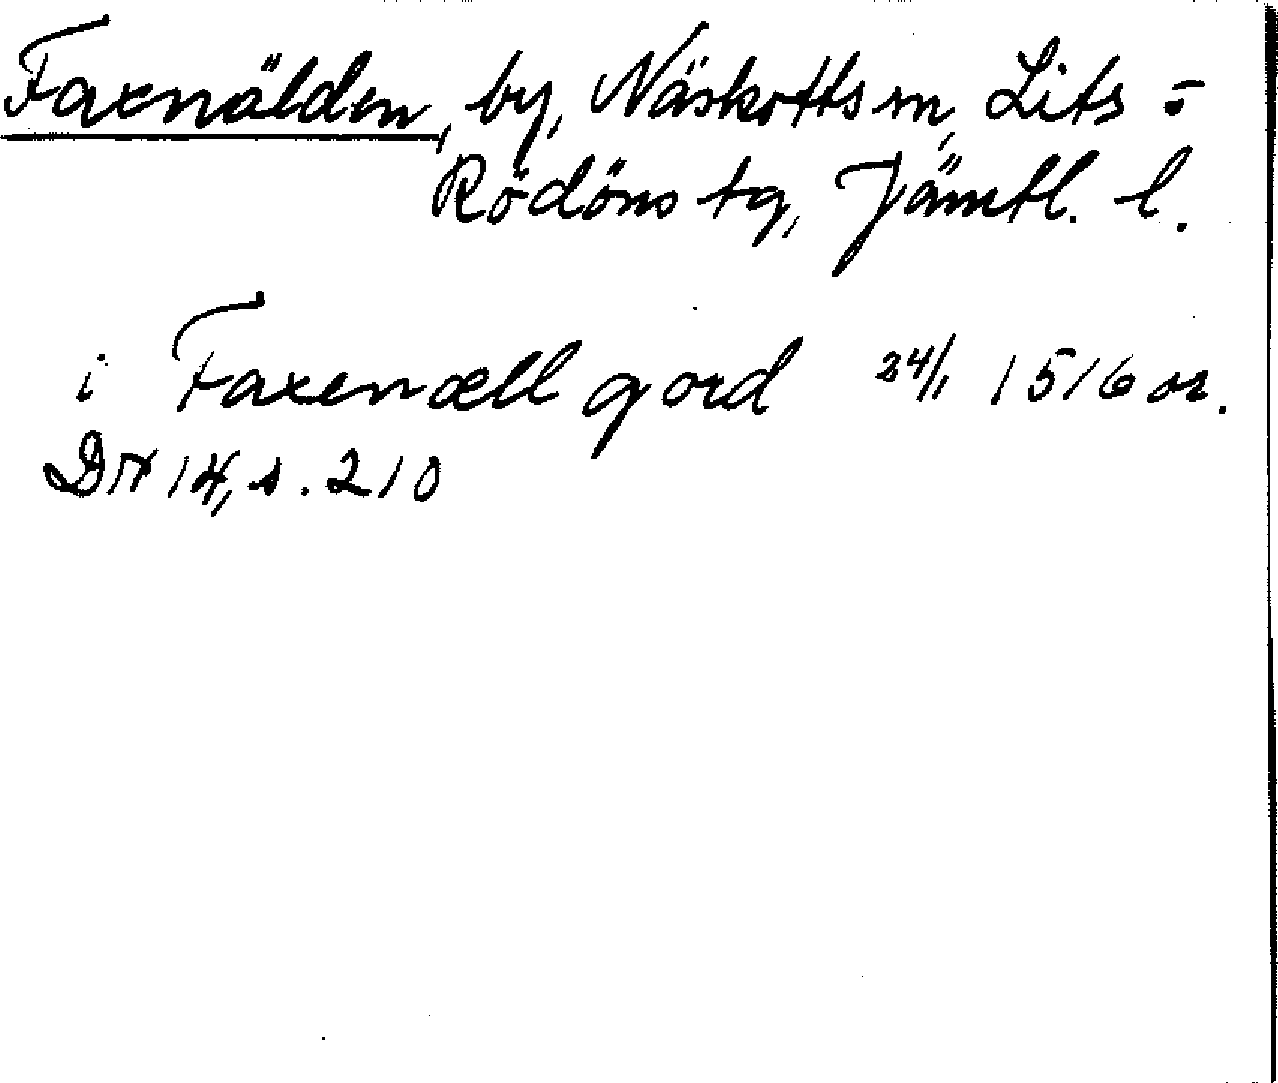 Faxnälden, by, Näskotts sn, Lits =
Rödöns tg, Jämtl. l.
i Faxenæll gord 24/1 1516 or.
DN 14, s. 210